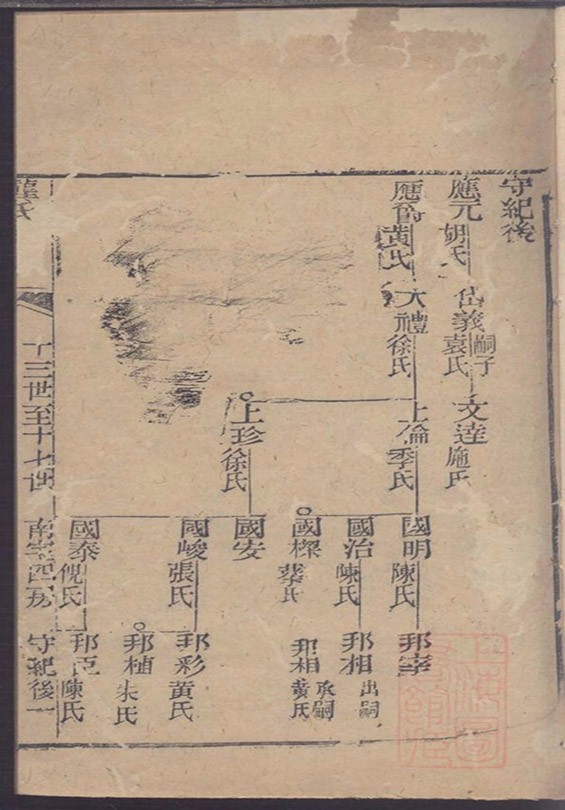 守紀後
應元 胡氏
仕義 嗣子 袁氏
文達 施氏
應爵 黃氏
大禮 徐氏
上倫 季氏
上珍 徐氏
國明 陳氏
國治 陳氏
國樑 裴氏
國安
國峻 張氏
國泰 倪氏
邦宰
邦相 出嗣
邦相 承嗣 黃氏
邦彩 黃氏
邦植 朱氏
邦 陳氏
氏
十三世至十七世
南宅四房
守紀後一